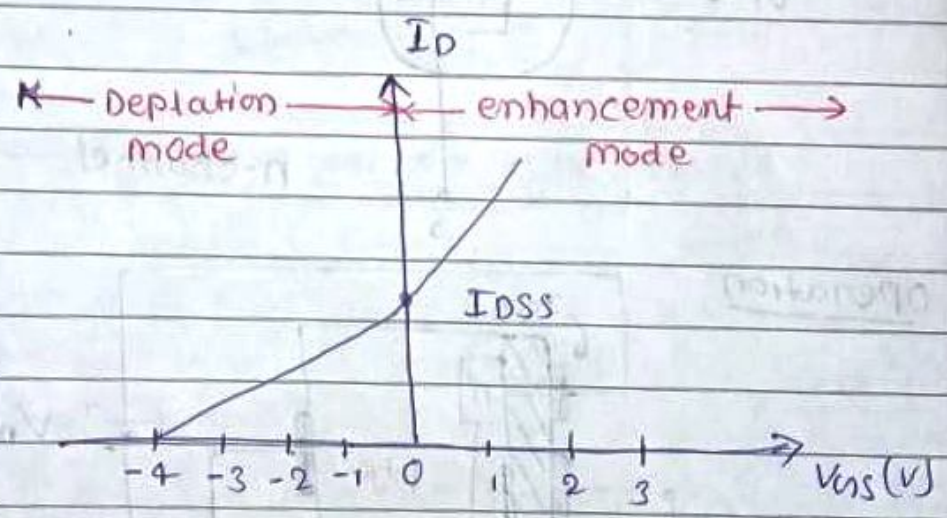 ID
Deplation enhancement
mode mode
IDSS
-4 -3 -2 -1 0 1 2 3 VGS(V)